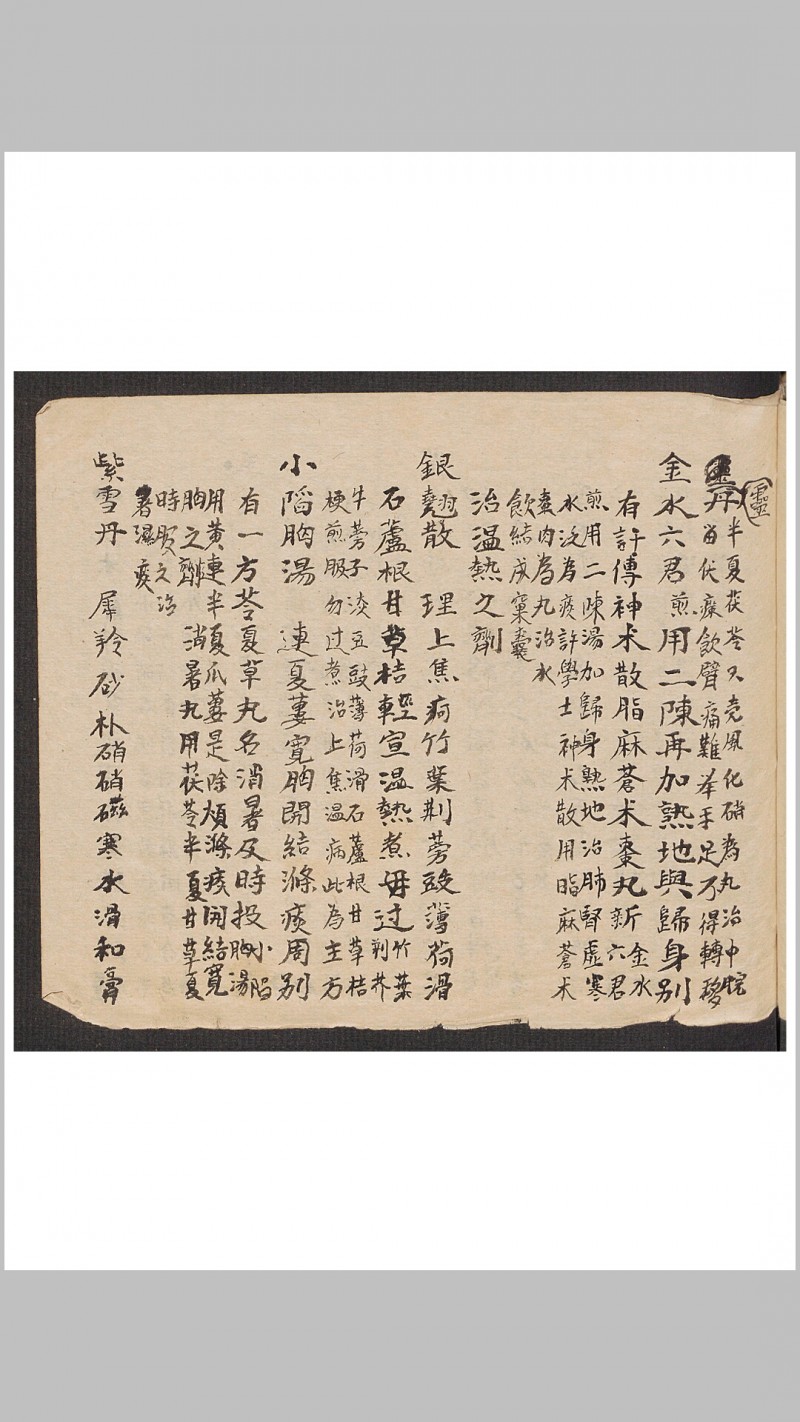 靈
丹
半夏茯苓又壳風化硝為丸治中脘
畄伏痰飲臂痛難举手足不得轉移
金水六君煎用二陳再加熟地與歸身别
有許傳神术散脂麻蒼术棗丸新
金水
六君
煎用二陳湯加歸身熟地治肺腎虚寒
水泛為痰許學士神术散用脂麻蒼术
棗肉為丸治水
飲結成窠囊
治温熱之劑
銀翹散 理上焦疴竹葉荆蒡豉薄荷滑
石蘆根甘草桔輕宣温熱煮毋过
竹葉
荆芥
牛蒡子淡豆豉薄荷滑石蘆根甘草桔
梗煎服勿过煮治上焦温病此為主方
小陷胸湯 連夏蔞寛胸開結滌痰周别
有一方苓夏草丸名消暑及時投
小陷
胸湯
用黄連半夏瓜蔞是除煩滌痰開結寛
胸之劑 消暑丸用茯苓半夏甘草夏
時服之治
暑濕痰
紫雪丹 犀羚砂朴硝硝磁寒水滑和膏